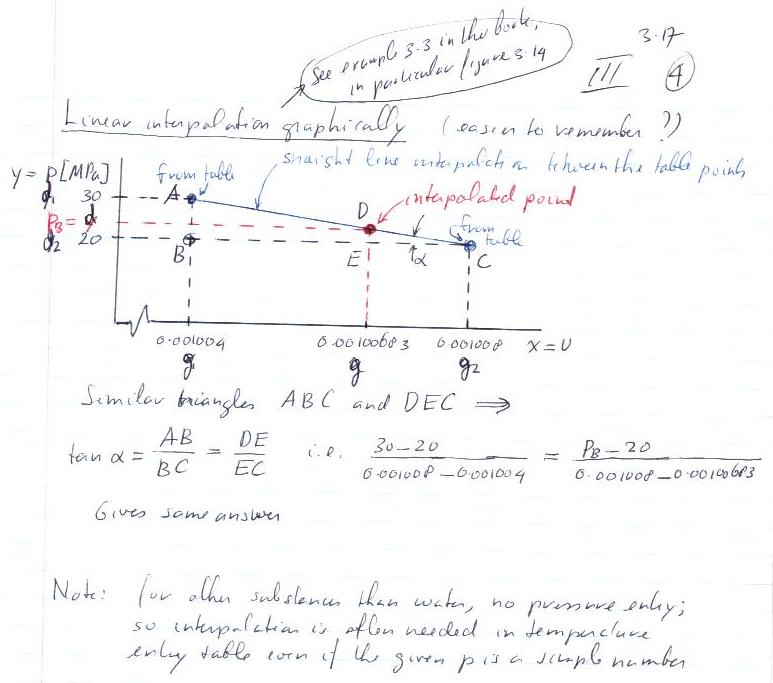 3.17
See example 3.3 in the book,
in particular figure 3.14
III 4
Linear interpolation graphically (easier to remember ?)
y = p[MPa] from table straight line interpolation between the table points
d1 30 A interpolated point
PB = d D from table
d2 20 B E α C
0.001004 0.00100683 0.001008 x = υ
g1 g g2
Similar triangles ABC and DEC ⇒
tan α = AB/BC = DE/EC i.e. 30-20 / 0.001008-0.001004 = PB-20 / 0.001008-0.00100683
Gives same answer
Note: for other substances than water, no pressure entry;
so interpolation is often needed in temperature
entry table even if the given p is a simple number